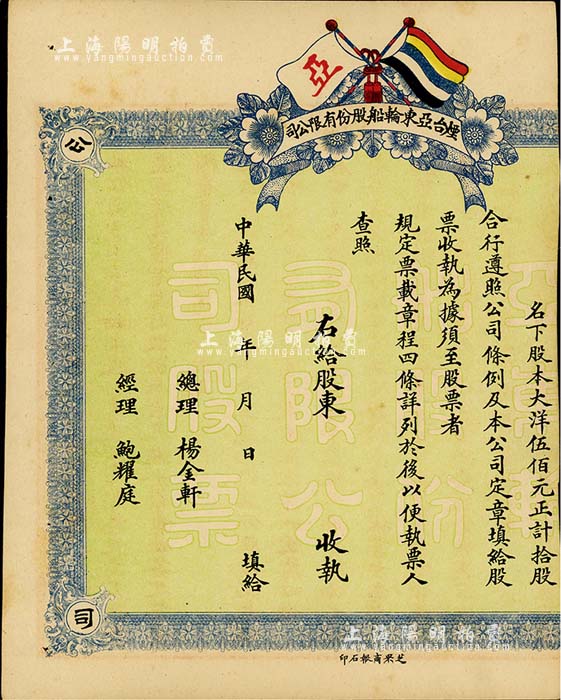 上海陽明拍賣
www.yangmingauction.com
亞
煙台亞東輪船股份有限公司
公
司
名下股本大洋伍佰元正計拾股
合行遵照公司條例及本公司定章填給股
票收執為據須至股票者
規定票載章程四條詳列於後以便執票人
查照
右給股東 收執
中華民國 年 月 日 填給
總理 楊金軒
經理 鮑耀庭
有限公
司股票
上海陽明拍賣
www.yangmingauction.com
上海陽明拍賣
www.yangmingauction.com
芝罘商報石印